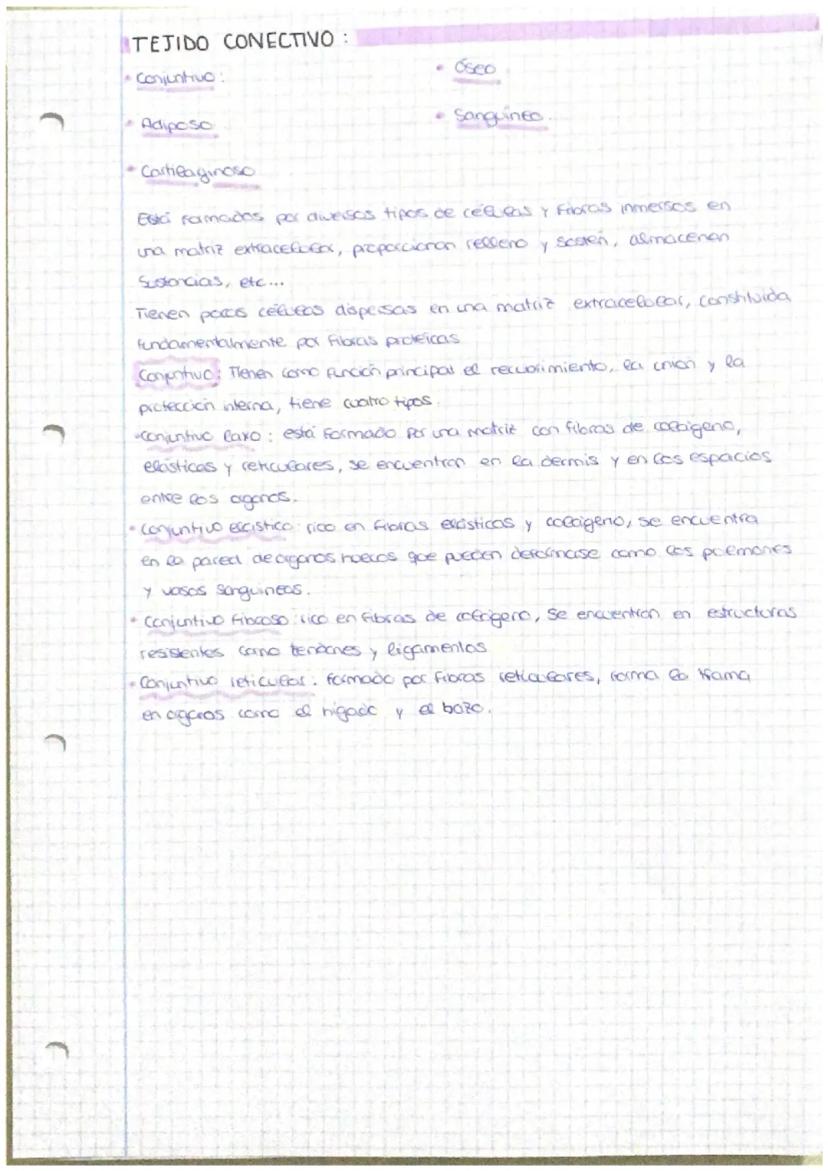 TEJIDO CONECTIVO :
• Conjuntivo:
• Óseo
• Adiposo
• Sanguíneo.
• Cartilaginoso
Está formados por diversos tipos de células y fibras inmersos en
una matriz extracelular, proporcionan relleno y sostén, almacenan
sustancias, etc...
Tienen pocas células dispersas en una matriz extracelular, constituida
fundamentalmente por fibras proteicas
Conjuntivo: Tienen como función principal el recubrimiento, la unión y la
protección interna, tiene cuatro tipos.
• Conjuntivo laxo: está formado por una matriz con fibras de colágeno,
elásticas y reticulares, se encuentran en la dermis y en los espacios
entre los órganos.
• Conjuntivo elástico: rico en fibras elásticas y colágeno, se encuentra
en la pared de órganos huecos que pueden deformarse como los pulmones
y vasos sanguíneos.
• Conjuntivo fibroso: rico en fibras de colágeno, se encuentran en estructuras
resistentes como tendones y ligamentos
• Conjuntivo reticular: formado por fibras reticulares, forma la trama
en órganos como el hígado y el bazo.